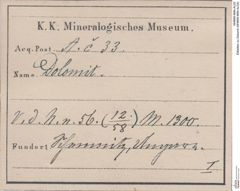 K. K. Mineralogisches Museum.
Acq. Post A. č 33.
Name: Dolomit.
V. d. N. n. 56. (12/58) M. 1300.
Fundort Schemnitz, Ungarn.
I